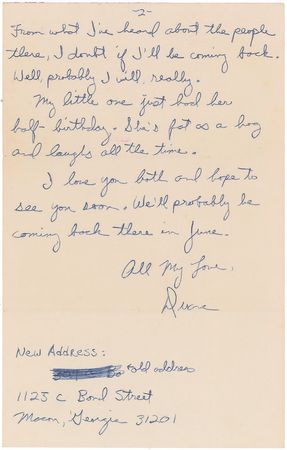 -2-
From what I've heard about the people
there, I doubt if I'll be coming back.
Well, probably I will, really.
My little one just had her
half-birthday. She's fat as a hog
and laughs all the time.
I love you both and hope to
see you soon. We'll probably be
coming back there in June.
All My Love,
Duane
New Address:
old address
1125 C Bond Street
Macon, Georgia 31201